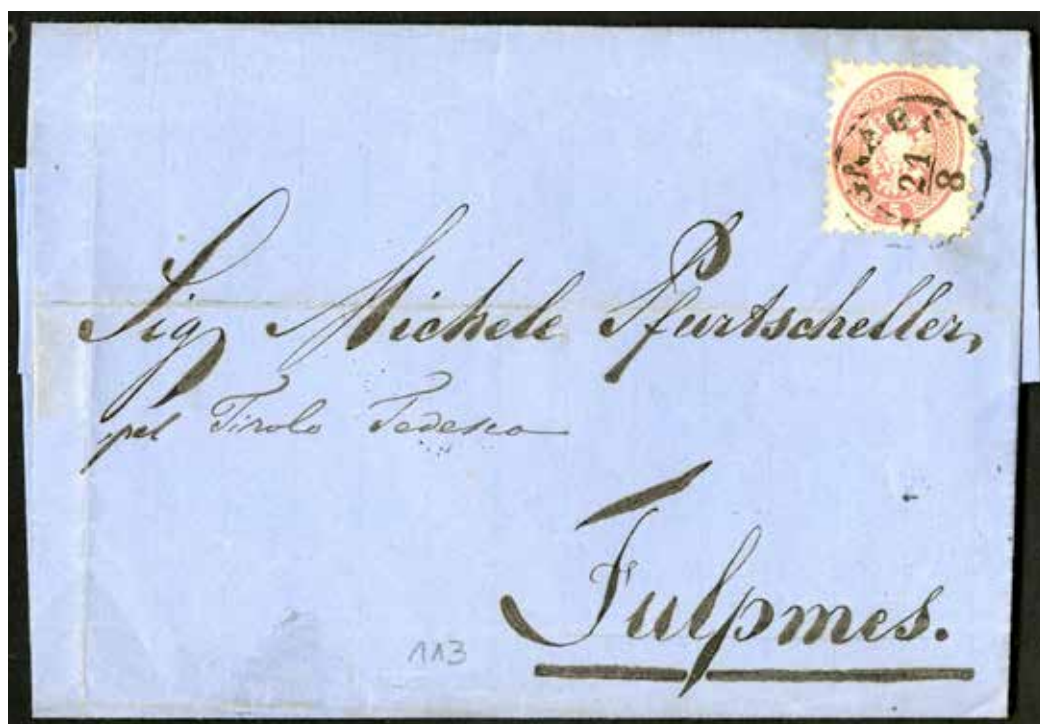 21
8
Sig Michele Pfurtscheller,
pel Tirolo Tedesco
Fulpmes.
113